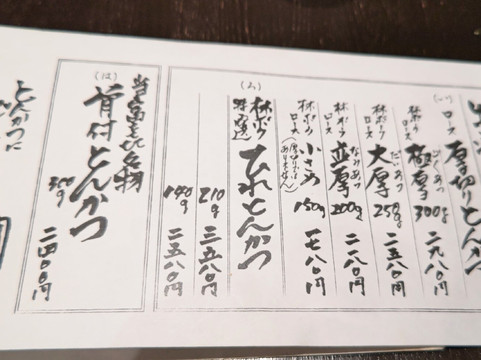 (い)
ロース
厚切りとんかつ
林ポーク
ロース
ごくあつ
極厚
300g
二九八〇円
林ポーク
ロース
だいあつ
大厚
250g
二五八〇円
林ポーク
ロース
なみあつ
並厚
200g
二一八〇円
林ポーク
ロース
小さめ
(厚切りでは
ありません)
150g
一七八〇円
(ろ)
林ポーク
特選
ひれとんかつ
210g
三五八〇円
140g
二五八〇円
(は)
当店名物
骨付とんかつ
350g
二四〇〇円
とんかつに